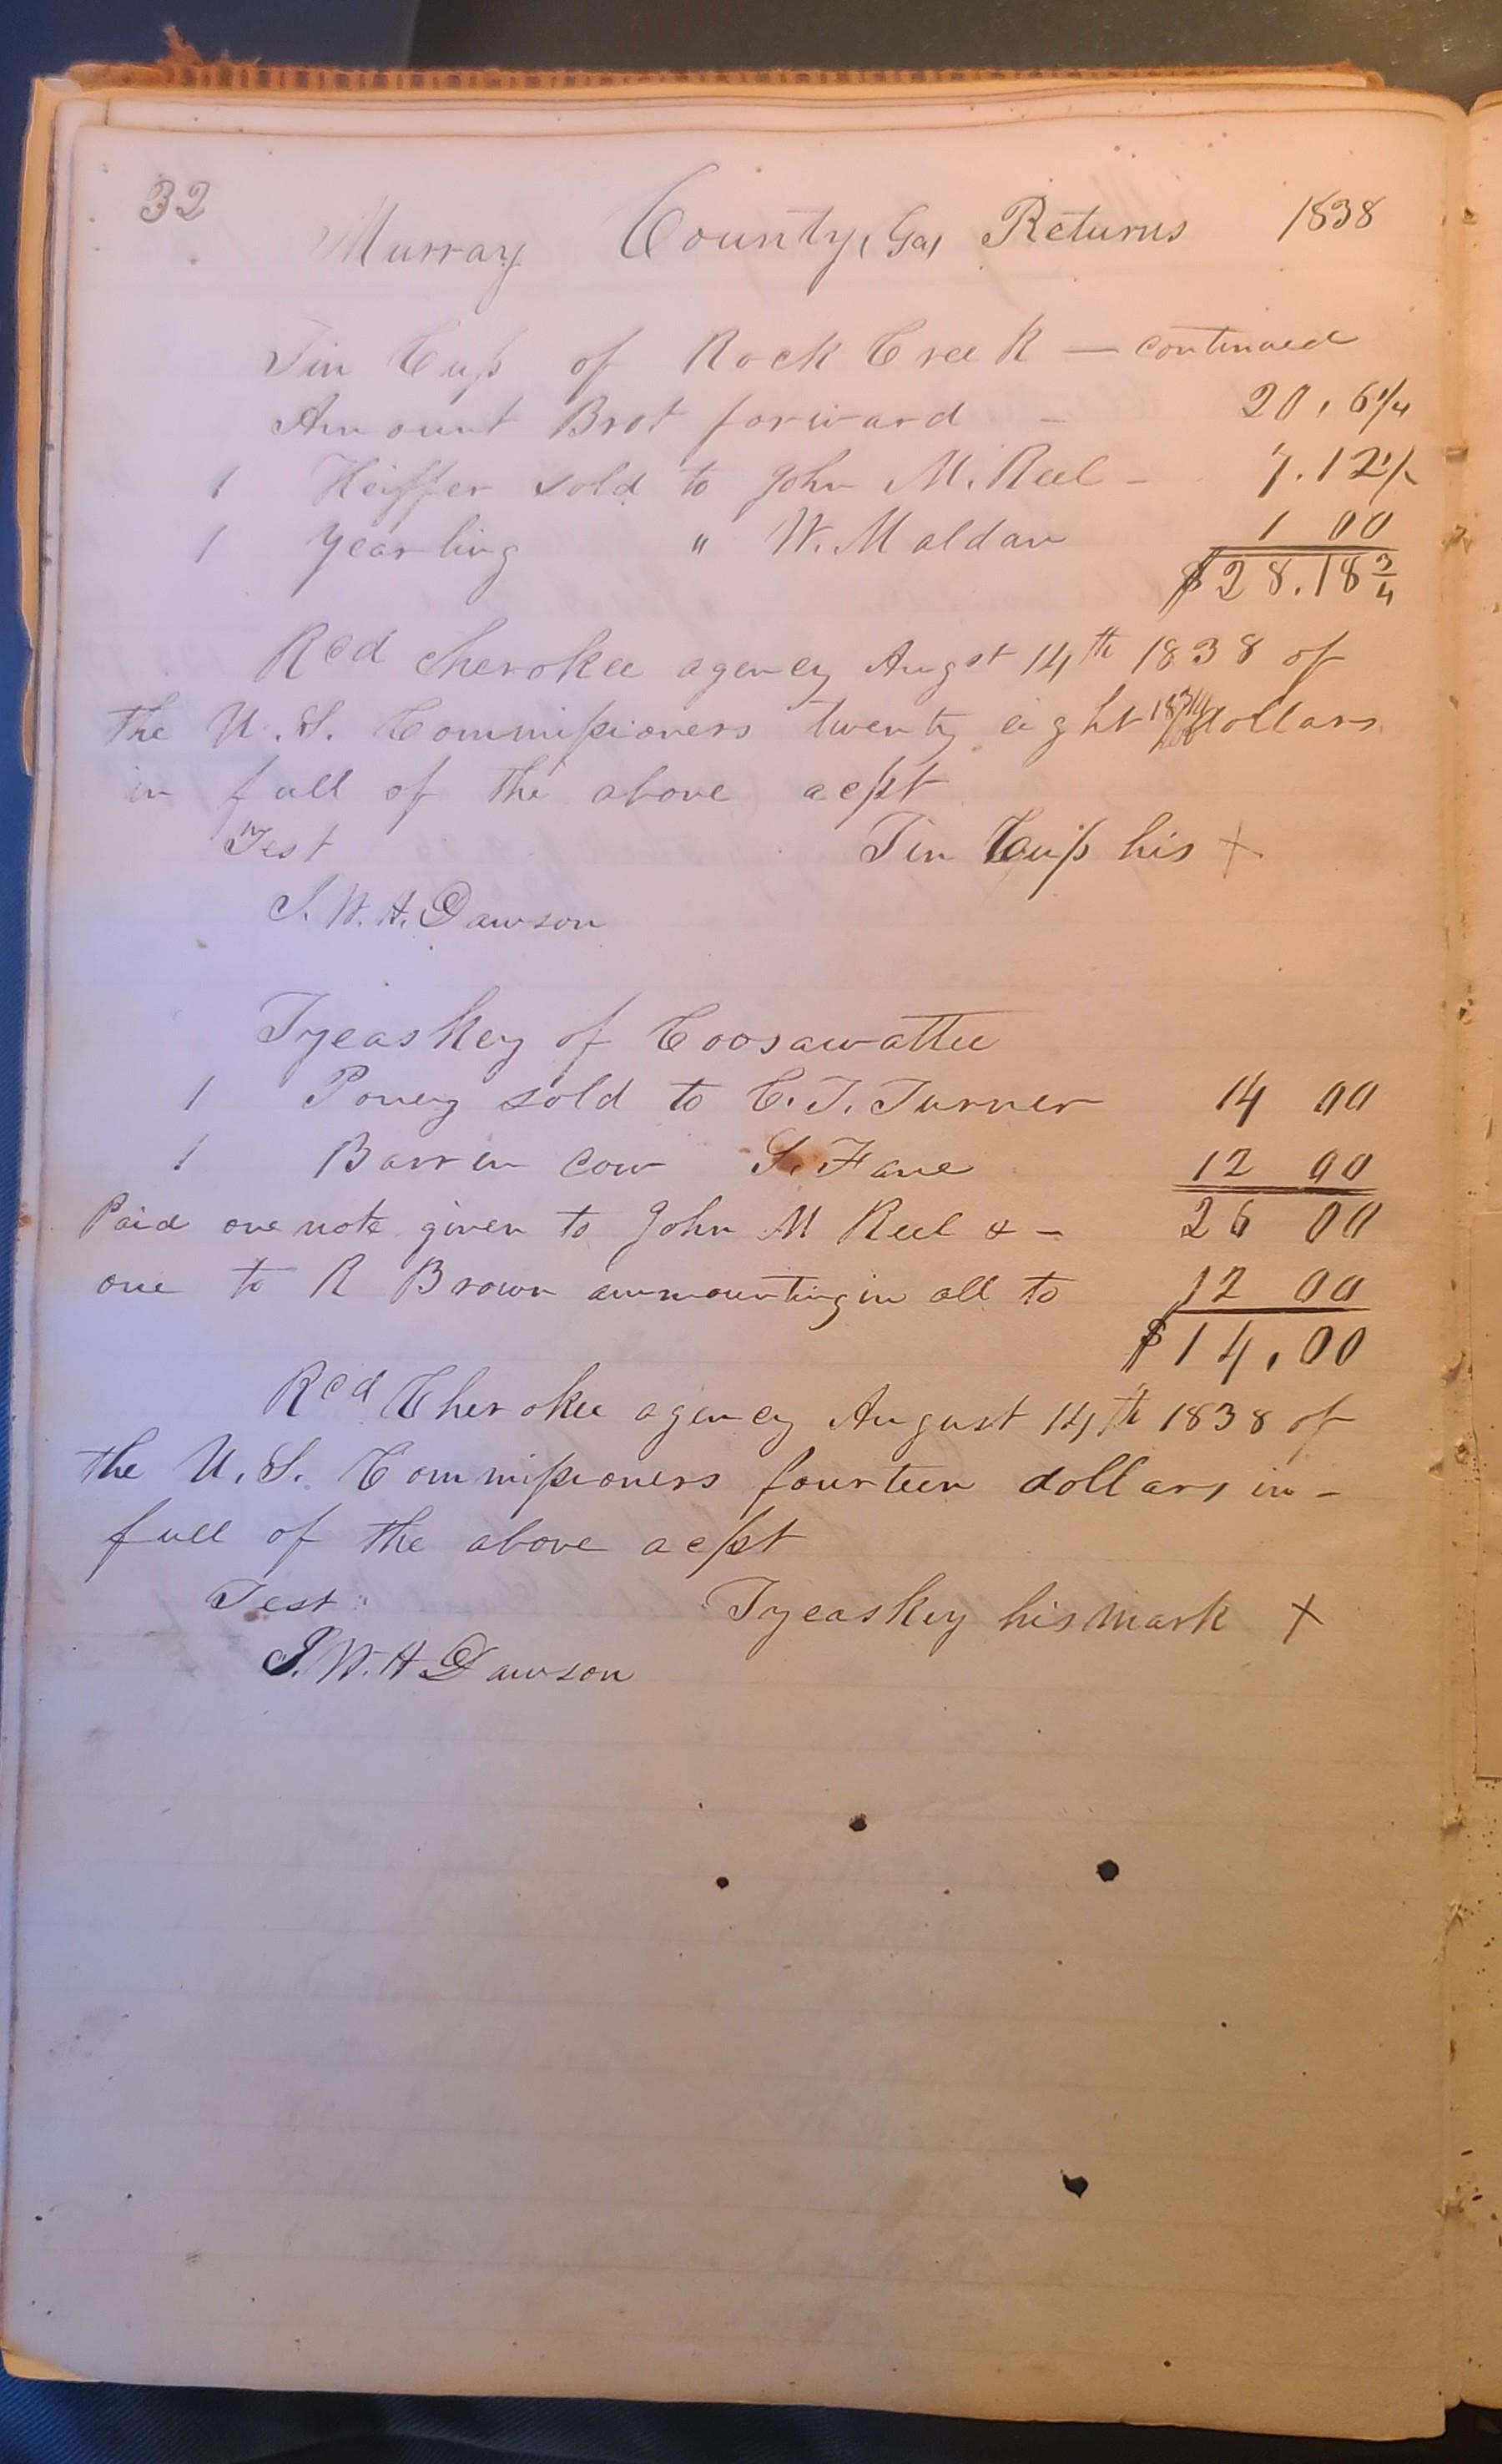 32
Murray County, Ga, Returns 1838
Tin Cup of Rock Creek — continued
Amount Brot forward — 20,6 1/4
1 Heiffer sold to John M. Reel — 7.12 1/2
1 Yearling " W. Maldan 1 00
$28.18 3/4
Recd Cherokee agency Augst 14th 1838 of
the U.S. Commissioners twenty eight 18 3/4/100 dollars
in full of the above acpt
Test Tin Cup his X
J. W. H. Dawson
Tyeaskey of Coosawattee
1 Poney sold to C. T. Turner 14 00
1 Barren Cow S. Fane 12 00
Paid one note given to John M Reel & — 26 00
one to R Brown ammounting in all to 12 00
$14,00
Recd Cherokee agency August 14th 1838 of
the U.S. Commissioners fourteen dollars in –
full of the above acpt
Test " Tyeaskey his mark X
J. W. H Dawson